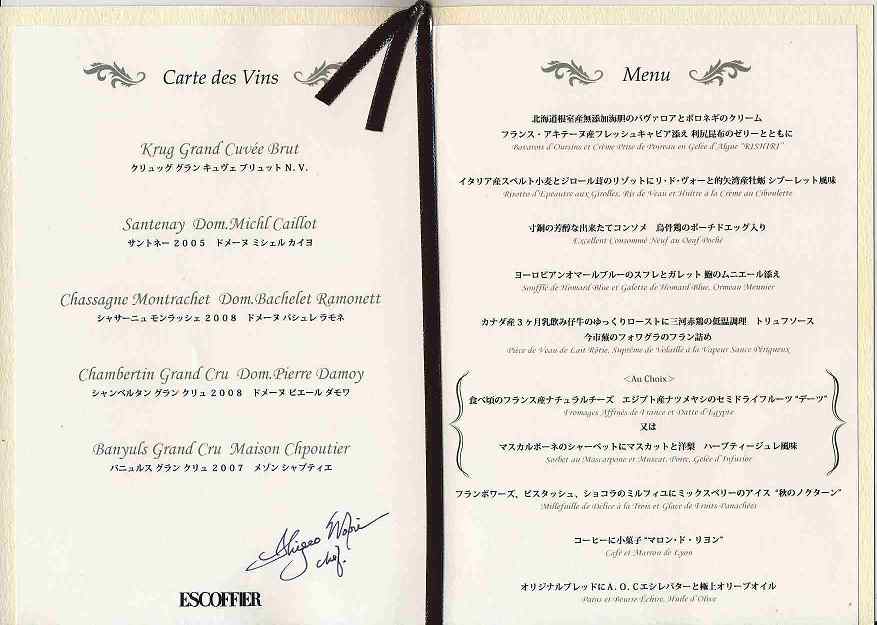 Carte des Vins
Krug Grand Cuvée Brut
クリュッグ グラン キュヴェ ブリュット N. V.
Santenay Dom.Michl Caillot
サントネー 2005 ドメーヌ ミシェル カイヨ
Chassagne Montrachet Dom.Bachelet Ramonett
シャサーニュ モンラッシェ 2008 ドメーヌ バシュレ ラモネ
Chambertin Grand Cru Dom.Pierre Damoy
シャンベルタン グラン クリュ 2008 ドメーヌ ピエール ダモワ
Banyuls Grand Cru Maison Chpoutier
バニュルス グラン クリュ 2007 メゾン シャプティエ
chef.
ESCOFFIER
Menu
北海道根室産無添加海胆のバヴァロアとポロネギのクリーム
フランス・アキテーヌ産フレッシュキャビア添え 利尻昆布のゼリーとともに
Bavarois d'Oursins et Crème Prise de Poireau en Gelée d'Algue "RISHIRI"
イタリア産スペルト小麦とジロール茸のリゾットにリ・ド・ヴォーと的矢湾産牡蛎 シブーレット風味
Risotto d'Epeautre aux Girolles, Ris de Veau et Huître à la Crème au Ciboulette
寸銅の芳醇な出来たてコンソメ 烏骨鶏のポーチドエッグ入り
Excellent Consommé Neuf au Oeuf Poché
ヨーロピアンオマールブルーのスフレとガレット 鮑のムニエール添え
Soufflé de Homard Blue et Galette de Homard Blue, Ormeau Meunier
カナダ産3ヶ月乳飲み仔牛のゆっくりローストに三河赤鶏の低温調理 トリュフソース
今市蕪のフォワグラのフラン詰め
Pièce de Veau de Lait Rôtie, Suprême de Volaille à la Vapeur Sauce Périgueux
<Au Choix>
食べ頃のフランス産ナチュラルチーズ エジプト産ナツメヤシのセミドライフルーツ "デーツ"
Fromages Affinés de France et Datte d'Egypte
又は
マスカルポーネのシャーベットにマスカットと洋梨 ハーブティージュレ風味
Sorbet au Mascarpone et Muscat, Poire, Gelée d'Infusion
フランボワーズ、ピスタッシュ、ショコラのミルフィユにミックスベリーのアイス "秋のノクターン"
Millefuille de Délice à la Trois et Glace de Fruits Panachées
コーヒーに小菓子 "マロン・ド・リヨン"
Café et Marron de Lyon
オリジナルブレッドにA. O. Cエシレバターと極上オリーブオイル
Pains et Beurre Échire, Huile d'Olive